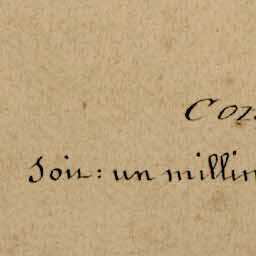 Con
Soit: un millim